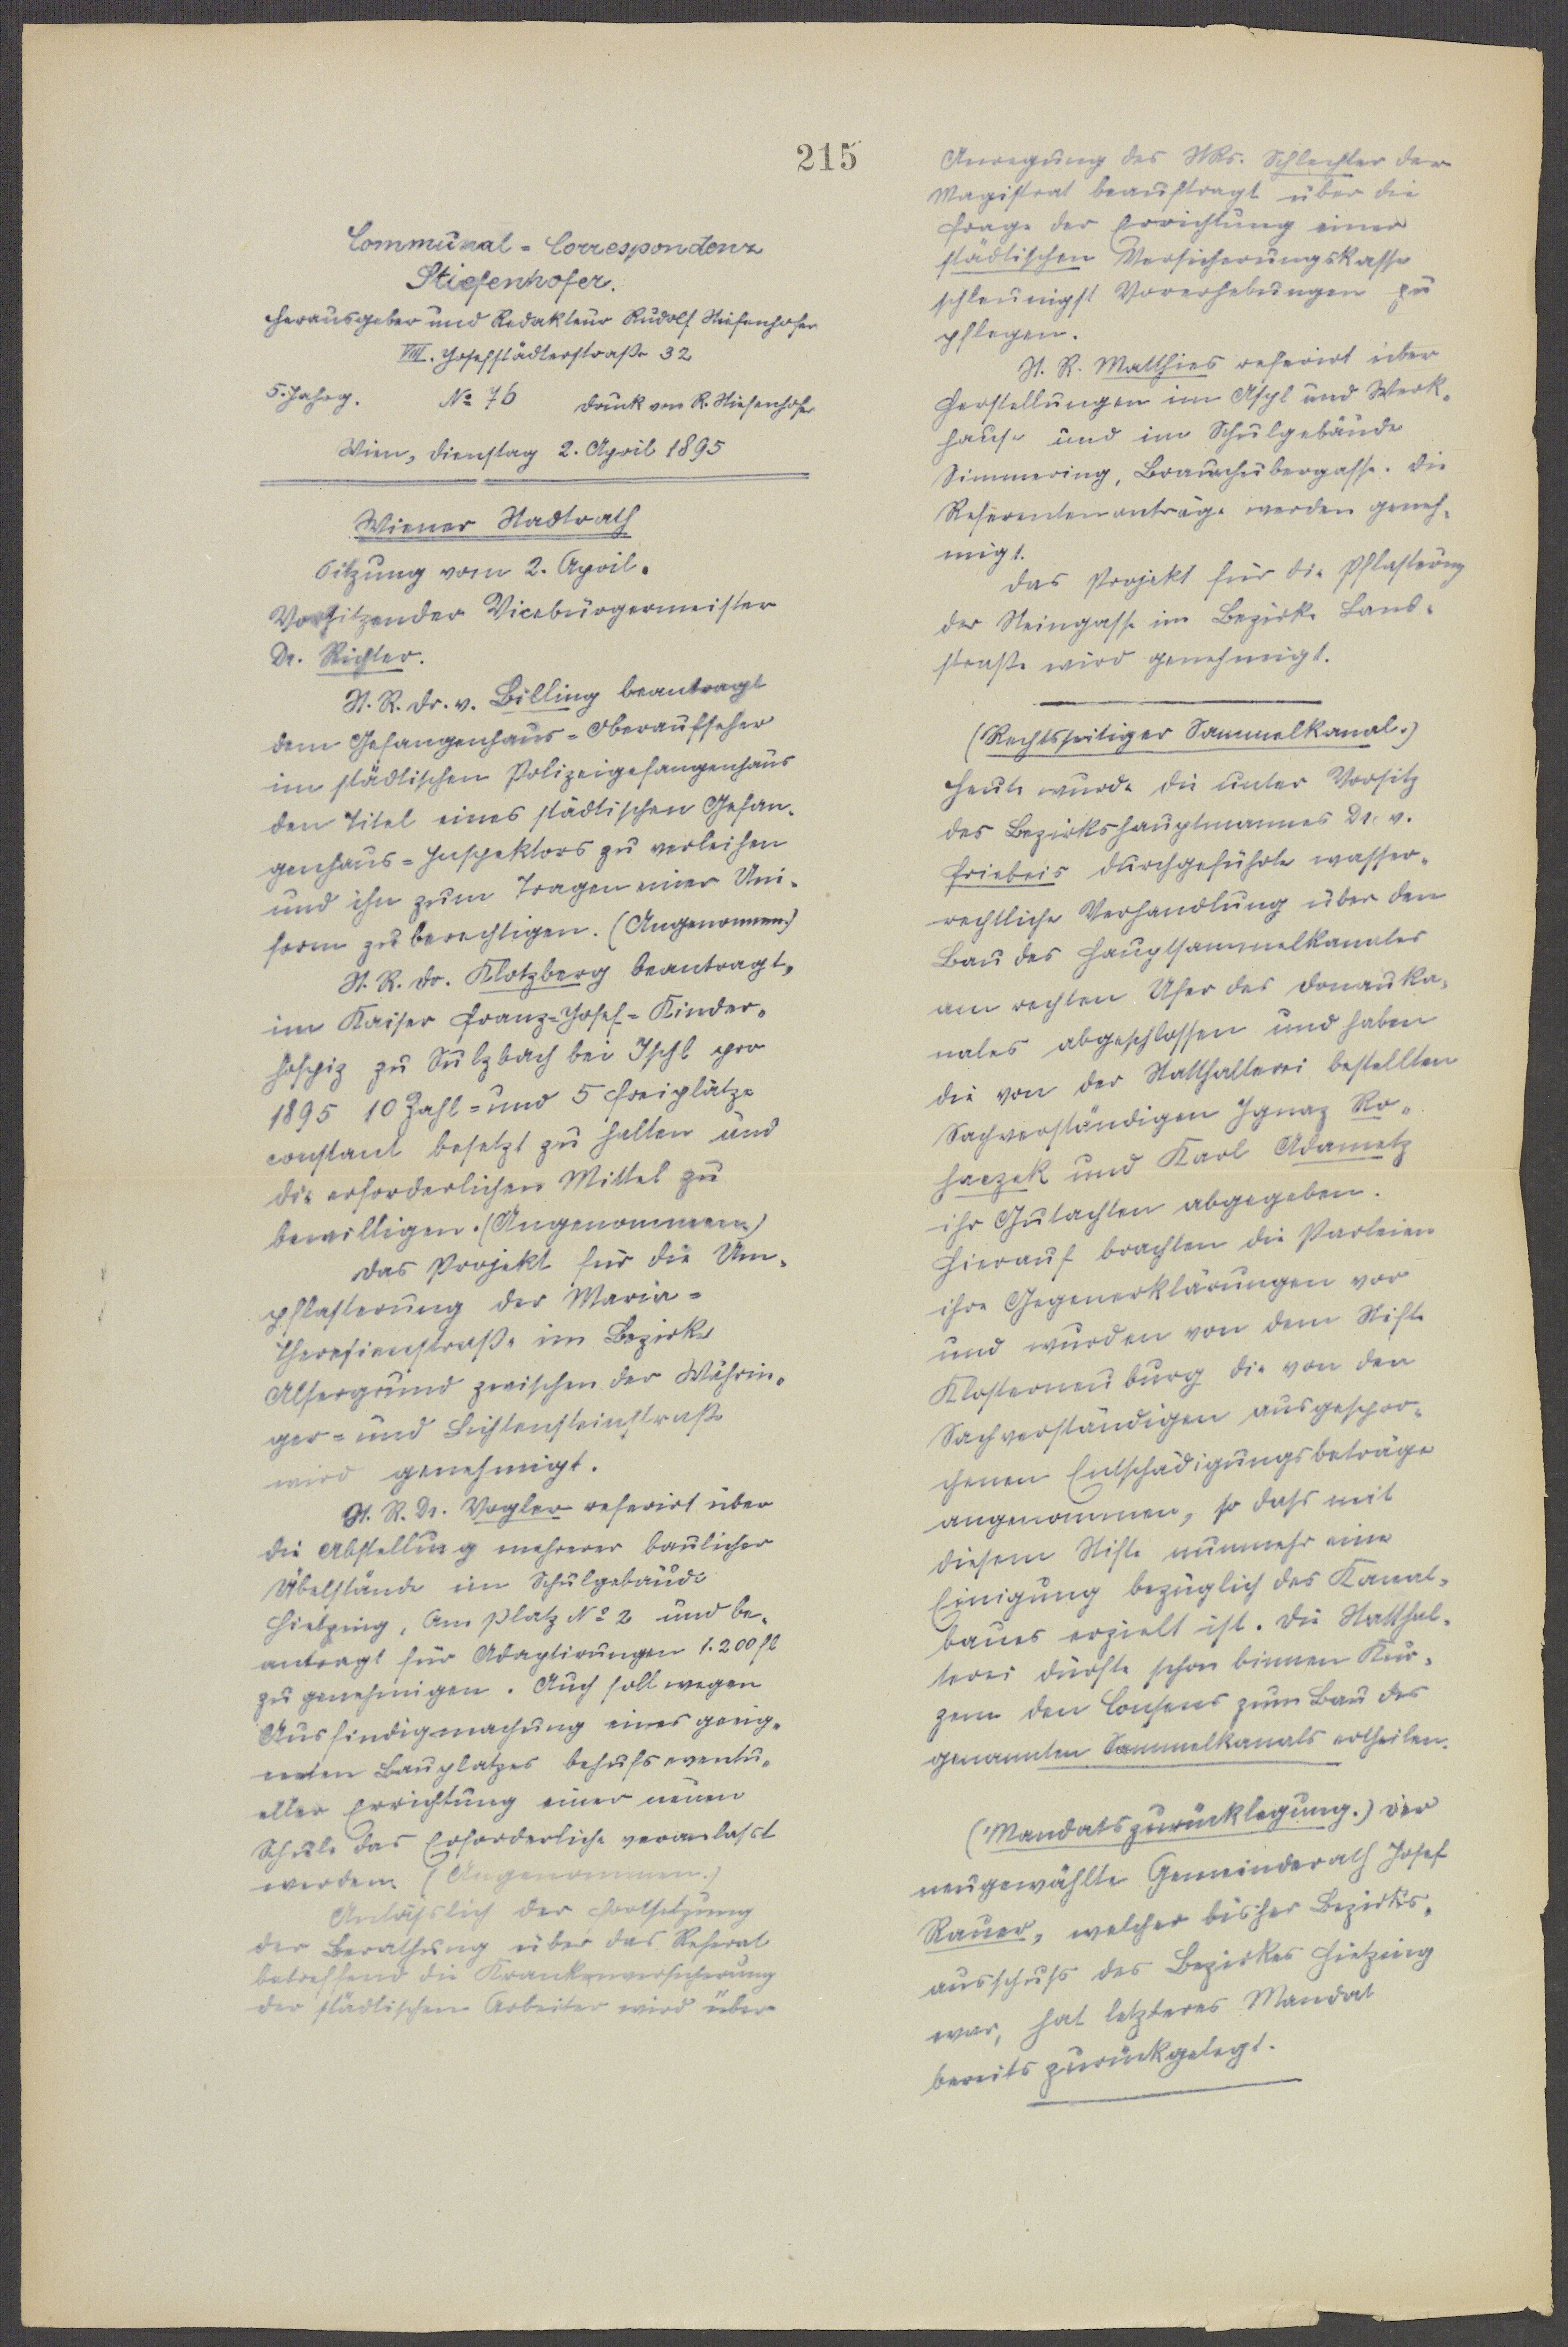 215
Communal-Correspondenz
Stiefenhofer.
Herausgeber und Redakteur Rudolf Stiefenhofer
VIII. Josefstädterstraße 32
5. Jahrg. No 76 Druck von R. Stiefenhofer
Wien, Dienstag 2. April 1895
Wiener Stadtrath
Sitzung vom 2. April.
Vorsitzender Vicebürgermeister
Dr. Richter.
St. R. Dr. v. Billing beantragt
dem Gefangenhaus-Oberaufseher
im städtischen Polizeigefangenhaus
den Titel eines städtischen Gefan-
genhaus-Inspektors zu verleihen
und ihn zum Tragen einer Uni-
form zu berechtigen. (Angenommen.)
St. R. Dr. Klotzberg beantragt,
im Kaiser Franz-Josef-Kinder-
hospiz zu Sulzbach bei Ischl pro
1895 10 Zahl- und 5 Freiplätze
constant besetzt zu halten und
die erforderlichen Mittel zu
bewilligen. (Angenommen)
Das Projekt für die Um-
pflasterung der Maria-
Theresienstraße im Bezirke
Alsergrund zwischen der Währin-
ger- und Lichtensteinstraße
wird genehmigt.
St. R. Dr. Vogler referirt über
die Abstellung mehrerer baulicher
Übelstände im Schulgebäude
Hietzing, Am Platz No 2 und be-
antragt für Adaptirungen 1.200 fl
zu genehmigen. Auch soll wegen
Ausfindigmachung eines geeig-
neten Bauplatzes behufs eventu-
eller Errichtung einer neuen
Schule das Erforderliche veranlasst
werden. (Angenommen.)
Anlässlich der Fortsetzung
der Berathung über das Referat
betreffend die Krankenversicherung
der städtischen Arbeiter wird über
Anregung des StRs. Schlechter der
Magistrat beauftragt über die
Frage der Errichtung einer
städtischen Versicherungskasse
schleunigst Vorerhebungen zu
pflegen.
St. R. Matthies referirt über
Herstellungen im Asyl und Werk-
hause und im Schulgebäude
Simmering, Braunhubergasse. Die
Referentenanträge werden geneh-
migt.
Das Projekt für die Pflasterung
der Steingasse im Bezirke Land-
straße wird genehmigt.
(Rechtsseitiger Sammelkanal.)
Heute wurde die unter Vorsitz
des Bezirkshauptmannes Dr. v.
Friebeis durchgeführte wasser-
rechtliche Verhandlung über den
Bau des Hauptsammelkanales
am rechten Ufer des Donauka-
nales abgeschlossen und haben
die von der Statthalterei bestellten
Sachverständigen Ignaz Ro-
haczek und Karl Adametz
ihr Gutachten abgegeben.
Hierauf brachten die Parteien
ihre Gegenerklärungen vor
und wurden von dem Stifte
Klosterneuburg die von den
Sachverständigen ausgespro-
chenen Entschädigungsbeträge
angenommen, so dass mit
diesem Stifte nunmehr eine
Einigung bezüglich des Kanal-
baues erzielt ist. Die Statthal-
terei dürfte schon binnen Kur-
zem den Consens zum Bau des
genannten Sammelkanals ertheilen.
(Mandatszurücklegung.) Der
neugewählte Gemeinderath Josef
Rauer, welcher bisher Bezirks-
ausschuss des Bezirkes Hietzing
war, hat letzteres Mandat
bereits zurückgelegt.